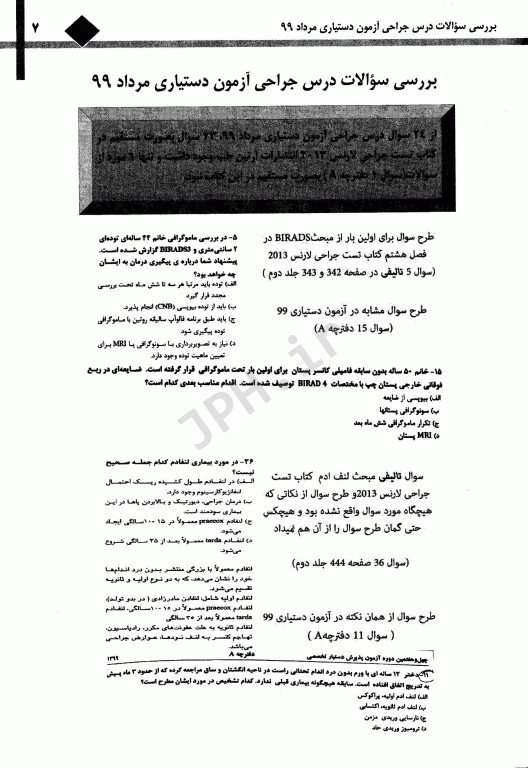 بررسی سؤالات درس جراحی آزمون دستیاری مرداد ۹۹
۷
بررسی سؤالات درس جراحی آزمون دستیاری مرداد ۹۹
از ۲۴ سوال درس جراحی آزمون دستیاری مرداد ۹۹، ۲۳ سوال بصورت مستقیم در
کتاب تست جراحی لارنس ۲۰۱۳ انتشارات آرتین طب وجود داشت و تنها ۱ مورد از
سوالات (سوال ۱ دفترچه A) بصورت مستقیم در این کتاب نبود.
طرح سوال برای اولین بار از مبحث BIRADS در
فصل هشتم کتاب تست جراحی لارنس 2013
(سوال 5 تالیفی در صفحه 342 و 343 جلد دوم )
طرح سوال مشابه در آزمون دستیاری 99
(سوال 15 دفترچه A)
۵- در بررسی ماموگرافی خانم ۴۴ ساله‌ای توده‌ای
۲ سانتی‌متری و BIRADS3 گزارش شده است.
پیشنهاد شما درباره ی پیگیری درمان به ایشان
چه خواهد بود؟
الف) توده باید مرتبا هر سه تا شش ماه تحت بررسی
مجدد قرار گیرد
ب) باید از توده بیوپسی (CNB) انجام پذیرد.
ج) باید طبق برنامه فالوآپ سالیانه روتین با ماموگرافی
توده پیگیری شود
د) نیاز به تصویربرداری با سونوگرافی یا MRI برای
تعیین ماهیت توده وجود دارد.
۱۵- خانم ۵۰ ساله بدون سابقه فامیلی کانسر پستان برای اولین بار تحت ماموگرافی قرار گرفته است. ضایعه‌ای در ربع
فوقانی خارجی پستان چپ با مختصات BIRAD 4 توصیف شده است. اقدام مناسب بعدی کدام است؟
الف) بیوپسی از ضایعه
ب) سونوگرافی پستانها
ج) تکرار ماموگرافی شش ماه بعد
د) MRI پستان
سوال تالیفی مبحث لنف ادم کتاب تست
جراحی لارنس 2013و طرح سوال از نکاتی که
هیچگاه مورد سوال واقع نشده بود و هیچکس
حتی گمان طرح سوال را از آن هم نمیداد
(سوال 36 صفحه 444 جلد دوم)
طرح سوال از همان نکته در آزمون دستیاری 99
( سوال 11 دفترچهA )
۳۶- در مورد بیماری لنفادم کدام جمله صحیح
نیست؟
الف) در لنفادم طول کشیده ریسک احتمال
لنفانژیوکارسینوم وجود دارد.
ب) درمان جراحی، دیورتیک و بالابردن پاها در این
بیماری سودمند است.
ج) لنفادم praecox معمولاً در ۱۵-۱۰سالگی ایجاد
می‌شود.
د) لنفادم tarda معمولاً بعد از ۳۵ سالگی شروع
می‌شود.
لنفادم معمولاً با بزرگی منتشر بدون درد اندام‌ها
خود را نشان می‌دهد، که به دو نوع اولیه و ثانویه
تقسیم می‌شود.
لنفادم اولیه شامل: لنفادن مادرزادی ( در بدو تولد)،
لنفادم praecox معمولاً در ۱۵-۱۰سالگی، لنفادم
tarda معمولاً بعد از ۳۵ سالگی
لنفادم ثانویه به علت عفونت‌های مکرر، رادیاسیون،
تهاجم کنسر به لنف نودها، عوارض جراحی
می‌باشد.
دفترچه A
چهل‌وهفتمین دوره آزمون پذیرش دستیار تخصصی
۱۳۹۹
۱۱- دختر ۱۳ ساله ای با ورم بدون درد اندام تحتانی راست در ناحیه انگشتان و ساق مراجعه کرده که از حدود ۳ ماه پیش
به تدریج اتفاق افتاده است. سابقه هیچگونه بیماری قبلی ندارد. کدام تشخیص در مورد ایشان مطرح است؟
الف) لنف ادم اولیه، پراکوکس
ب) لنف ادم ثانویه، اکتسابی
ج) نارسایی وریدی مزمن
د) ترومبوز وریدی حاد
JPH.ir